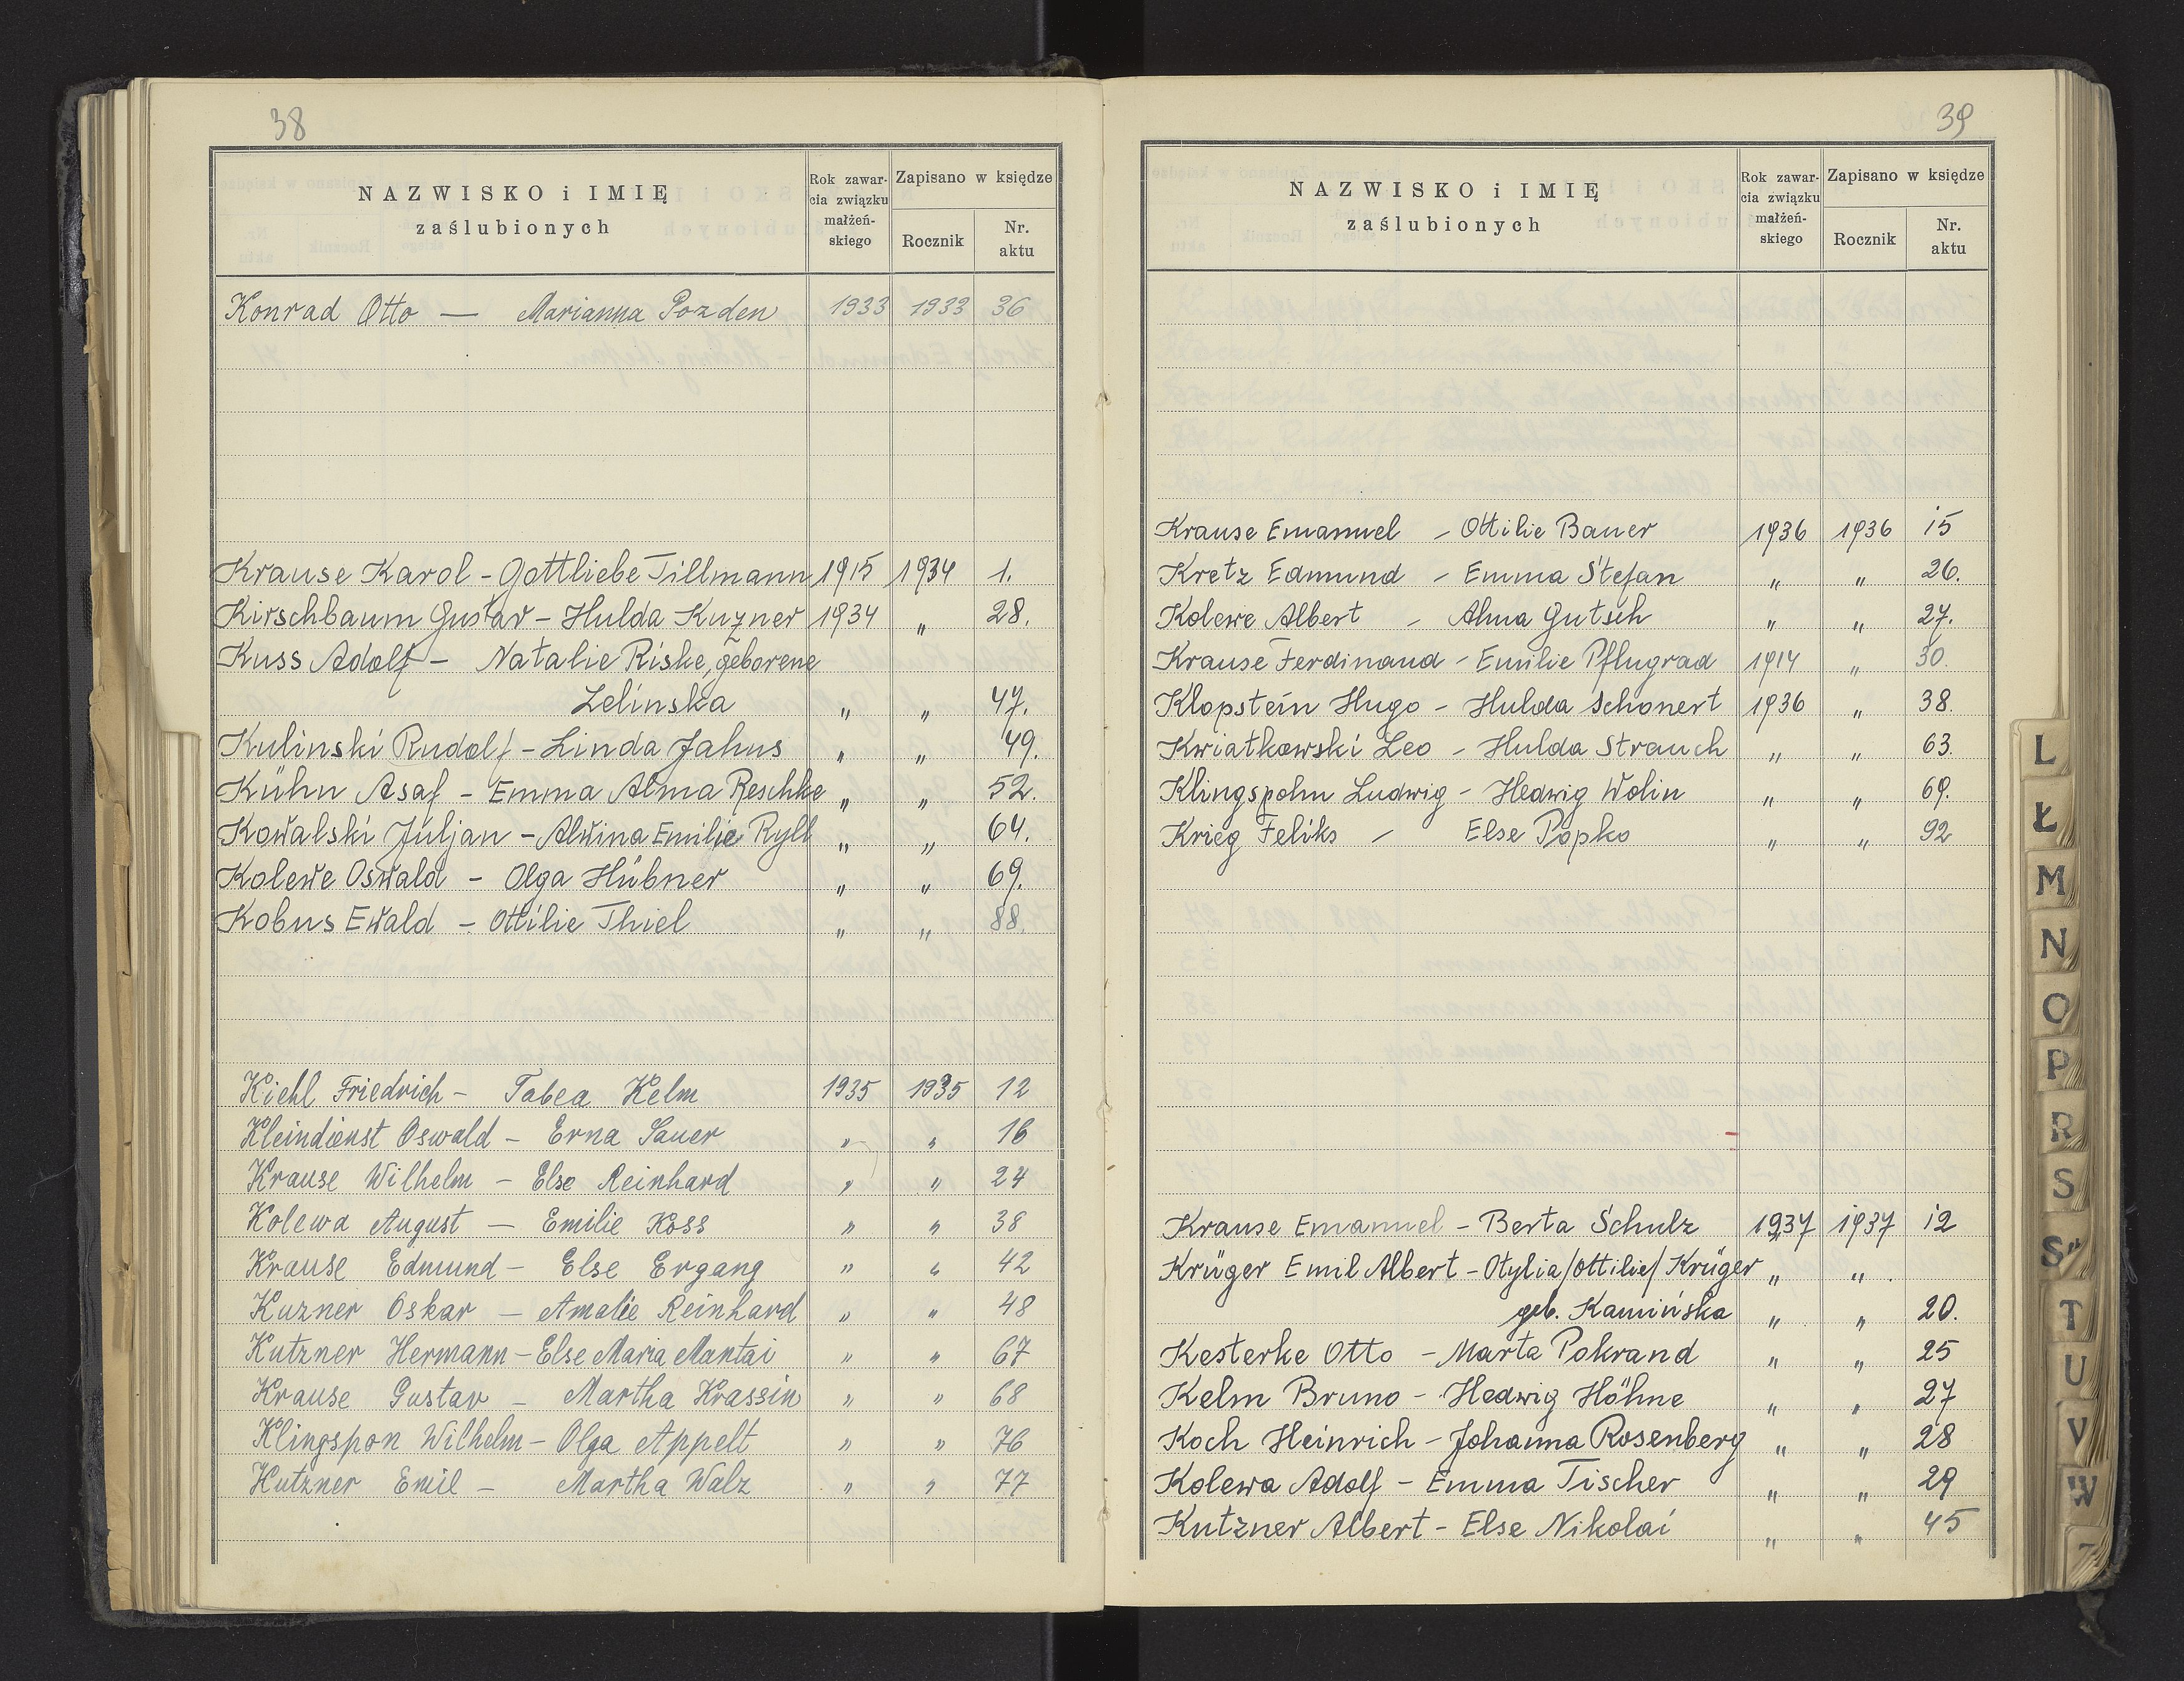 38
NAZWISKO i IMIĘ
zaślubionych
Rok zawar-
cia związku
małżeń-
skiego
Zapisano w księdze
Rocznik
Nr.
aktu
Konrad Otto — Marianna Pozden 1933 1933 36
Krause Karol - Gottliebe Tillmann 1915 1934 1.
Kirschbaum Gustav - Hulda Kuzner 1934 " 28.
Kuss Adolf - Natalie Riske, geborene
Zelinska " " 47.
Kulinski Rudolf - Linda Jahns " " 49.
Kühn Asaf - Emma Alma Reschke " " 52.
Kowalski Juljan - Alwina Emilie Ryll " " 64.
Kolewe Oswald - Olga Hübner " " 69.
Kobus Ewald - Ottilie Thiel " " 88.
Kiehl Friedrich - Tabea Kelm 1935 1935 12
Kleindienst Oswald - Erna Sauer " " 16
Krause Wilhelm - Else Reinhard " " 24
Kolewa August — Emilie Koss " " 38
Krause Edmund - Else Ergang " " 42
Kuzner Oskar — Amalie Reinhard " " 48
Kutzner Hermann - Else Maria Mantai " " 67
Krause Gustav - Martha Krassin " " 68
Klingspon Wilhelm - Olga Appelt " " 76
Kutzner Emil - Martha Walz " " 77
39
NAZWISKO i IMIĘ
zaślubionych
Rok zawar-
cia związku
małżeń-
skiego
Zapisano w księdze
Rocznik
Nr.
aktu
Krause Emanuel - Ottilie Bauer 1936 1936 15
Kretz Edmund - Emma Stefan " " 26.
Kolewe Albert - Alma Gutsch " " 27.
Krause Ferdinand - Emilie Pflugrad 1914 " 30.
Klopstein Hugo - Hulda Schonert 1936 " 38.
Kwiatkowski Leo - Hulda Strauch " " 63.
Klingspohn Ludwig - Hedwig Wolin " " 69.
Krieg Feliks - Else Popko " " 92
Krause Emanuel - Berta Schulz 1937 1937 12
Krüger Emil Albert - Otylia /Ottilie/ Krüger " "
geb. Kamińska " " 20.
Kesterke Otto - Marta Pokrand " " 25
Kelm Bruno - Hedwig Höhne " " 27
Koch Heinrich - Johanna Rosenberg " " 28
Kolewa Adolf - Emma Tischer " " 29
Kutzner Albert - Else Nikolai " " 45
L
Ł
M
N
O
P
R
S
Ś
T
U
V
W
Z